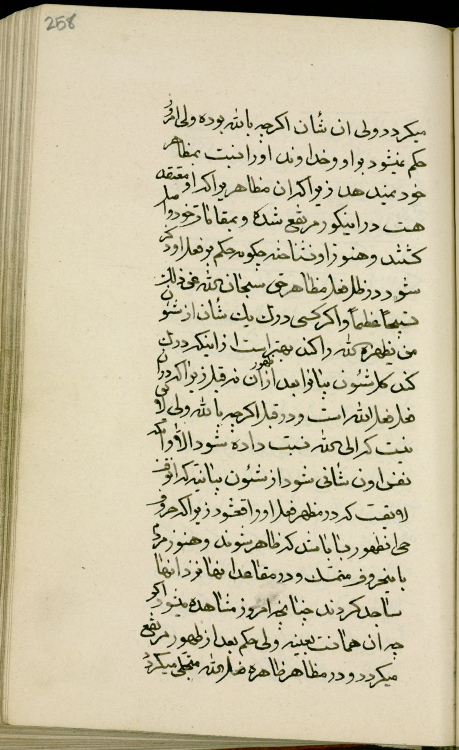 258
میکردد ولی ان شان اکرچه بالله بوده ولی امروز
حکم نمیشود بر او و خداوند او را نسبت بمظاهر
خود نمیدهد زیرا که ان مظاهر یوا که او
هست در انیکور مرتفع شده و بمقامات خود
کشتند و هنوز او نشناخته چکونه حکم بر فعل او ذکر
شود در ظل فعل مظاهر حق سبحان الله عن ذلک
تسبیحا عظیما واکر کسی درک یک شان از شئون
من یظهره الله را کند بهتر است از اینکه درک
کند کل شئون بیانرا بعد از ظهور ان نه قبل زیرا که در ان
فعل فعل الله است و در قبل اکرچه بالله ولی لا
نسبت که الی الله نسبت داده شود الا و انکه
نفس او ن شانی شود از شئون بیانیه که
لایق نیست که در مظهر فعل او راقع شود زیرا که حروف
حی انظهور میباشند که ظاهر میشوند و هنوز مردم
باینحروف متمسک و در مقاعد انها نزد انها
ساجد کردند چنانچه امروز مشاهده میشود اکر
چه ان همانست بعینه ولی حکم بعد از ظهور مرتفع
میکردد و در مظاهر ظاهره فعل الله متجلی میکردد